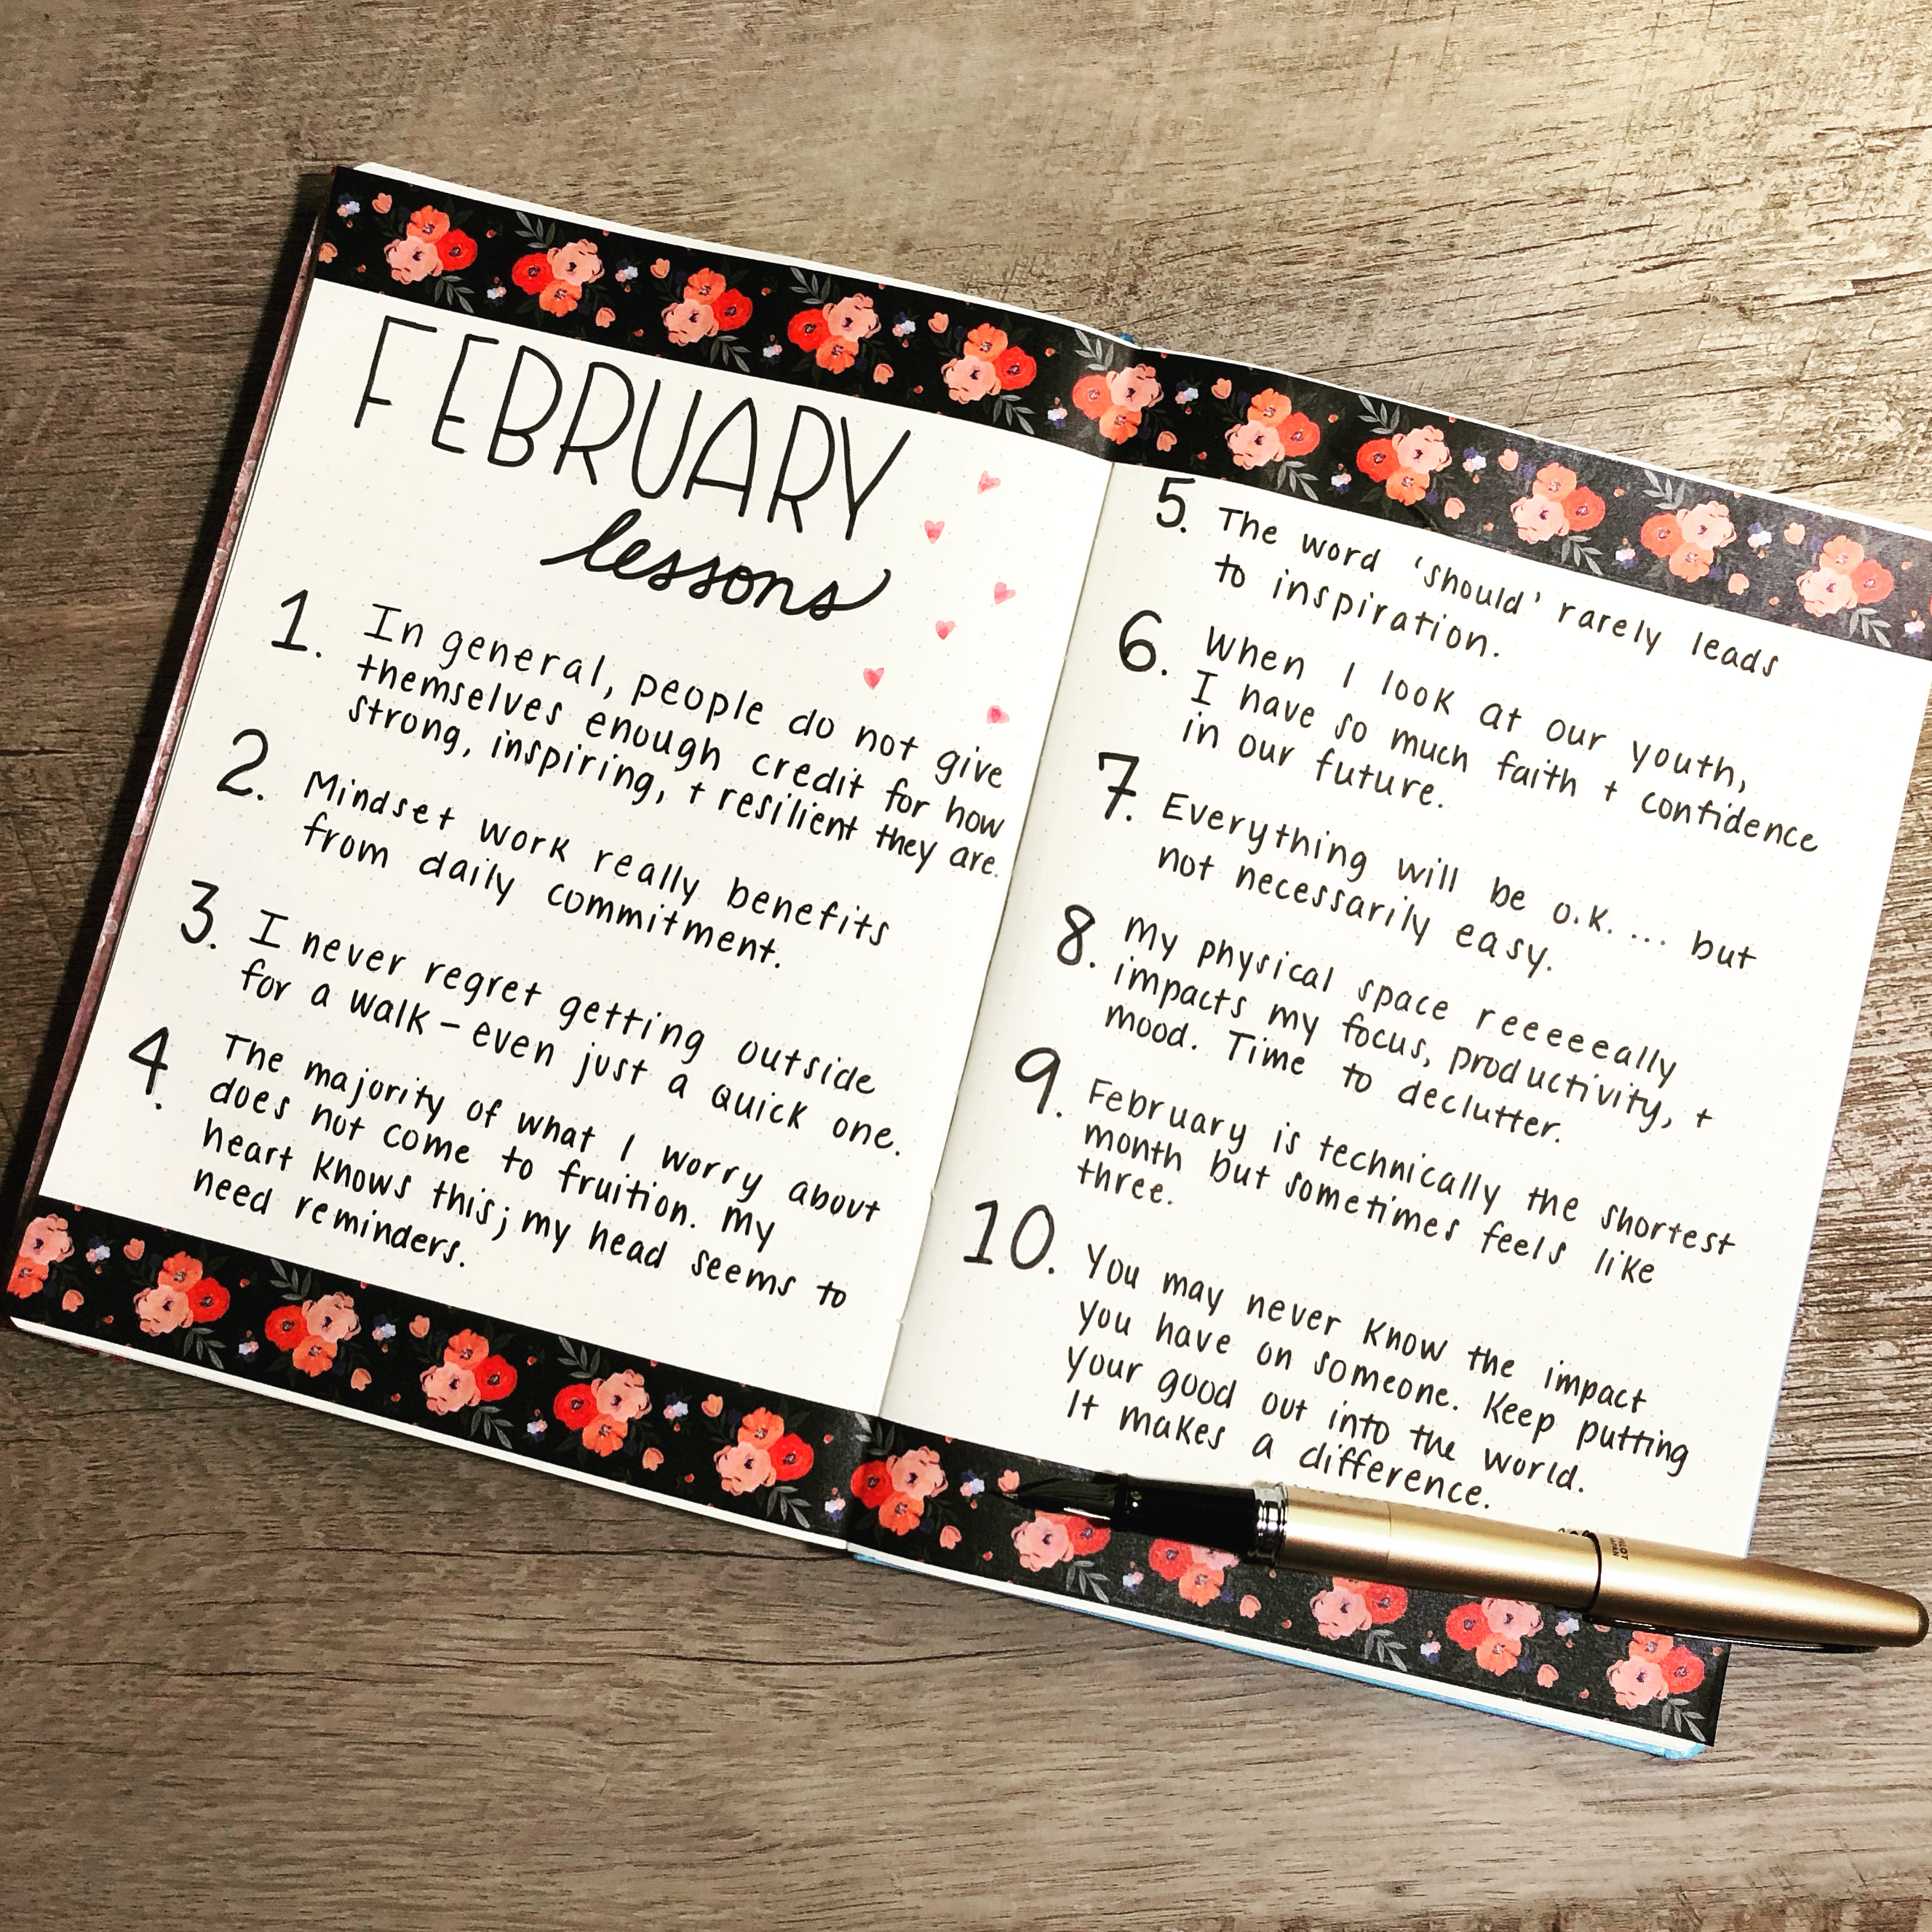 FEBRUARY
lessons
1. In general, people do not give
themselves enough credit for how
strong, inspiring, + resilient they are.
2. Mindset work really benefits
from daily commitment.
3. I never regret getting outside
for a walk – even just a quick one.
4. The majority of what I worry about
does not come to fruition. My
heart knows this; my head seems to
need reminders.
5. The word 'should' rarely leads
to inspiration.
6. When I look at our youth,
I have so much faith + confidence
in our future.
7. Everything will be o.k.... but
not necessarily easy.
8. My physical space reeeeeally
impacts my focus, productivity, +
mood. Time to declutter.
9. February is technically the shortest
month but sometimes feels like
three.
10. You may never know the impact
you have on someone. Keep putting
your good out into the world.
It makes a difference.